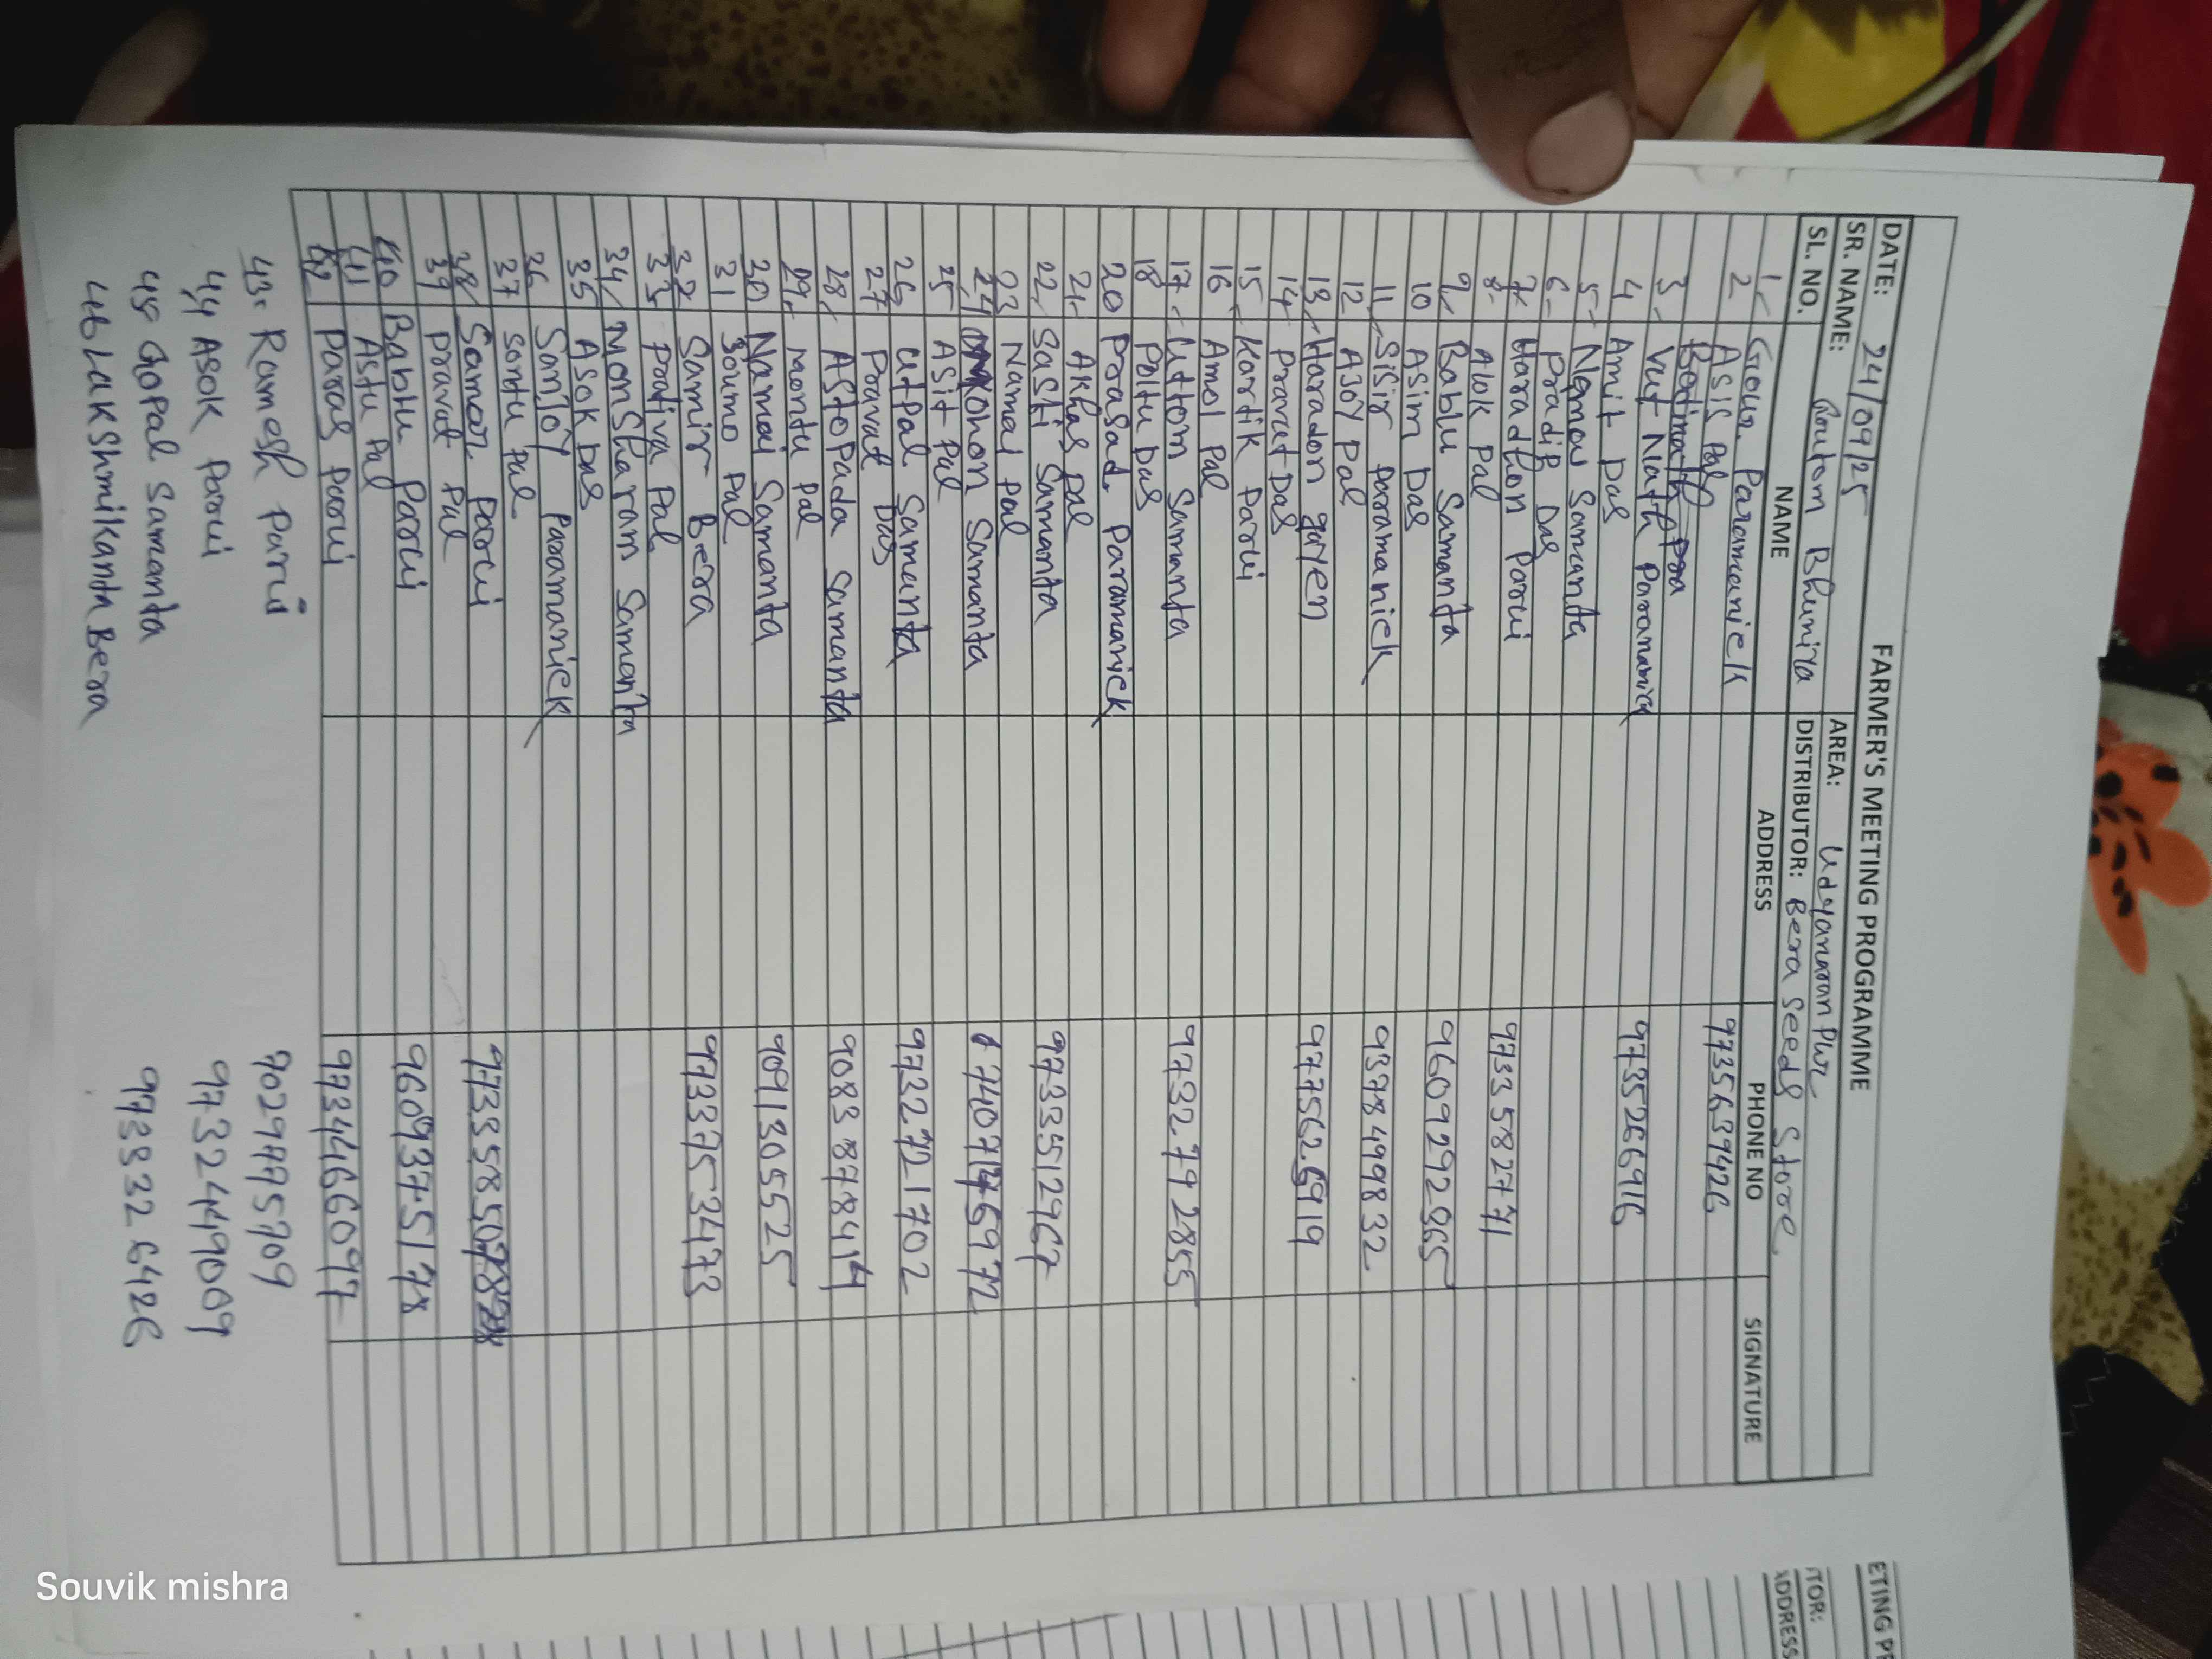 FARMER'S MEETING PROGRAMME
DATE: 24/09/25
SR. NAME: Bhunira AREA:
SL. NO. NAME DISTRIBUTOR: Bera Seeds Store
ADDRESS PHONE NO SIGNATURE
1 Gour Paramanick 9735639426
2 Asis Pal
3 Nath
4 Amit Das 9735266916
5 Samanta
6 Pradip Das
7 Haradhon Parui 9733582771
8 Alok Pal
9 Bablu Samanta 9609292865
10 Asim Das
11 Sisir Paramanick 9378499832
12 AJoy Pal
13 Haradon gayen 977562
14 Pravat Das
15 Kartik Parui
16 Amol Pal
17 Uttom Samanta 9732792855
18 Poltu Das
20 Prasad Paramanick
21 Akhas Pal
22 Sasti Samanta 9733512967
23 Namal Pal
24 Samanta
25 Asit Pal
26 Utpal Samanta 9732721702
27 Pravat Das
28 Astopada Samanta 9083878414
29 montu Pal
Namai Samanta 9091305525
31 Soumo Pal
32 Samir Bera 9733753473
33 Prativa Pal
34 MonSharam Samanta
35 Asok Das
36 Sanjoy Paramanick
37 Sontu Pal
38 Samar Parui
39 Pravat Pal
40 Bablu Parui 9609375178
41 Astu Pal
42 Paras Parui 9734466097
43 Ramesh Parui
44 Asok Parui
45 Gopal Samanta 9733326426
46 Lakshmikanta Bera
ETING PR
TOR:
ADDRESS
Souvik mishra